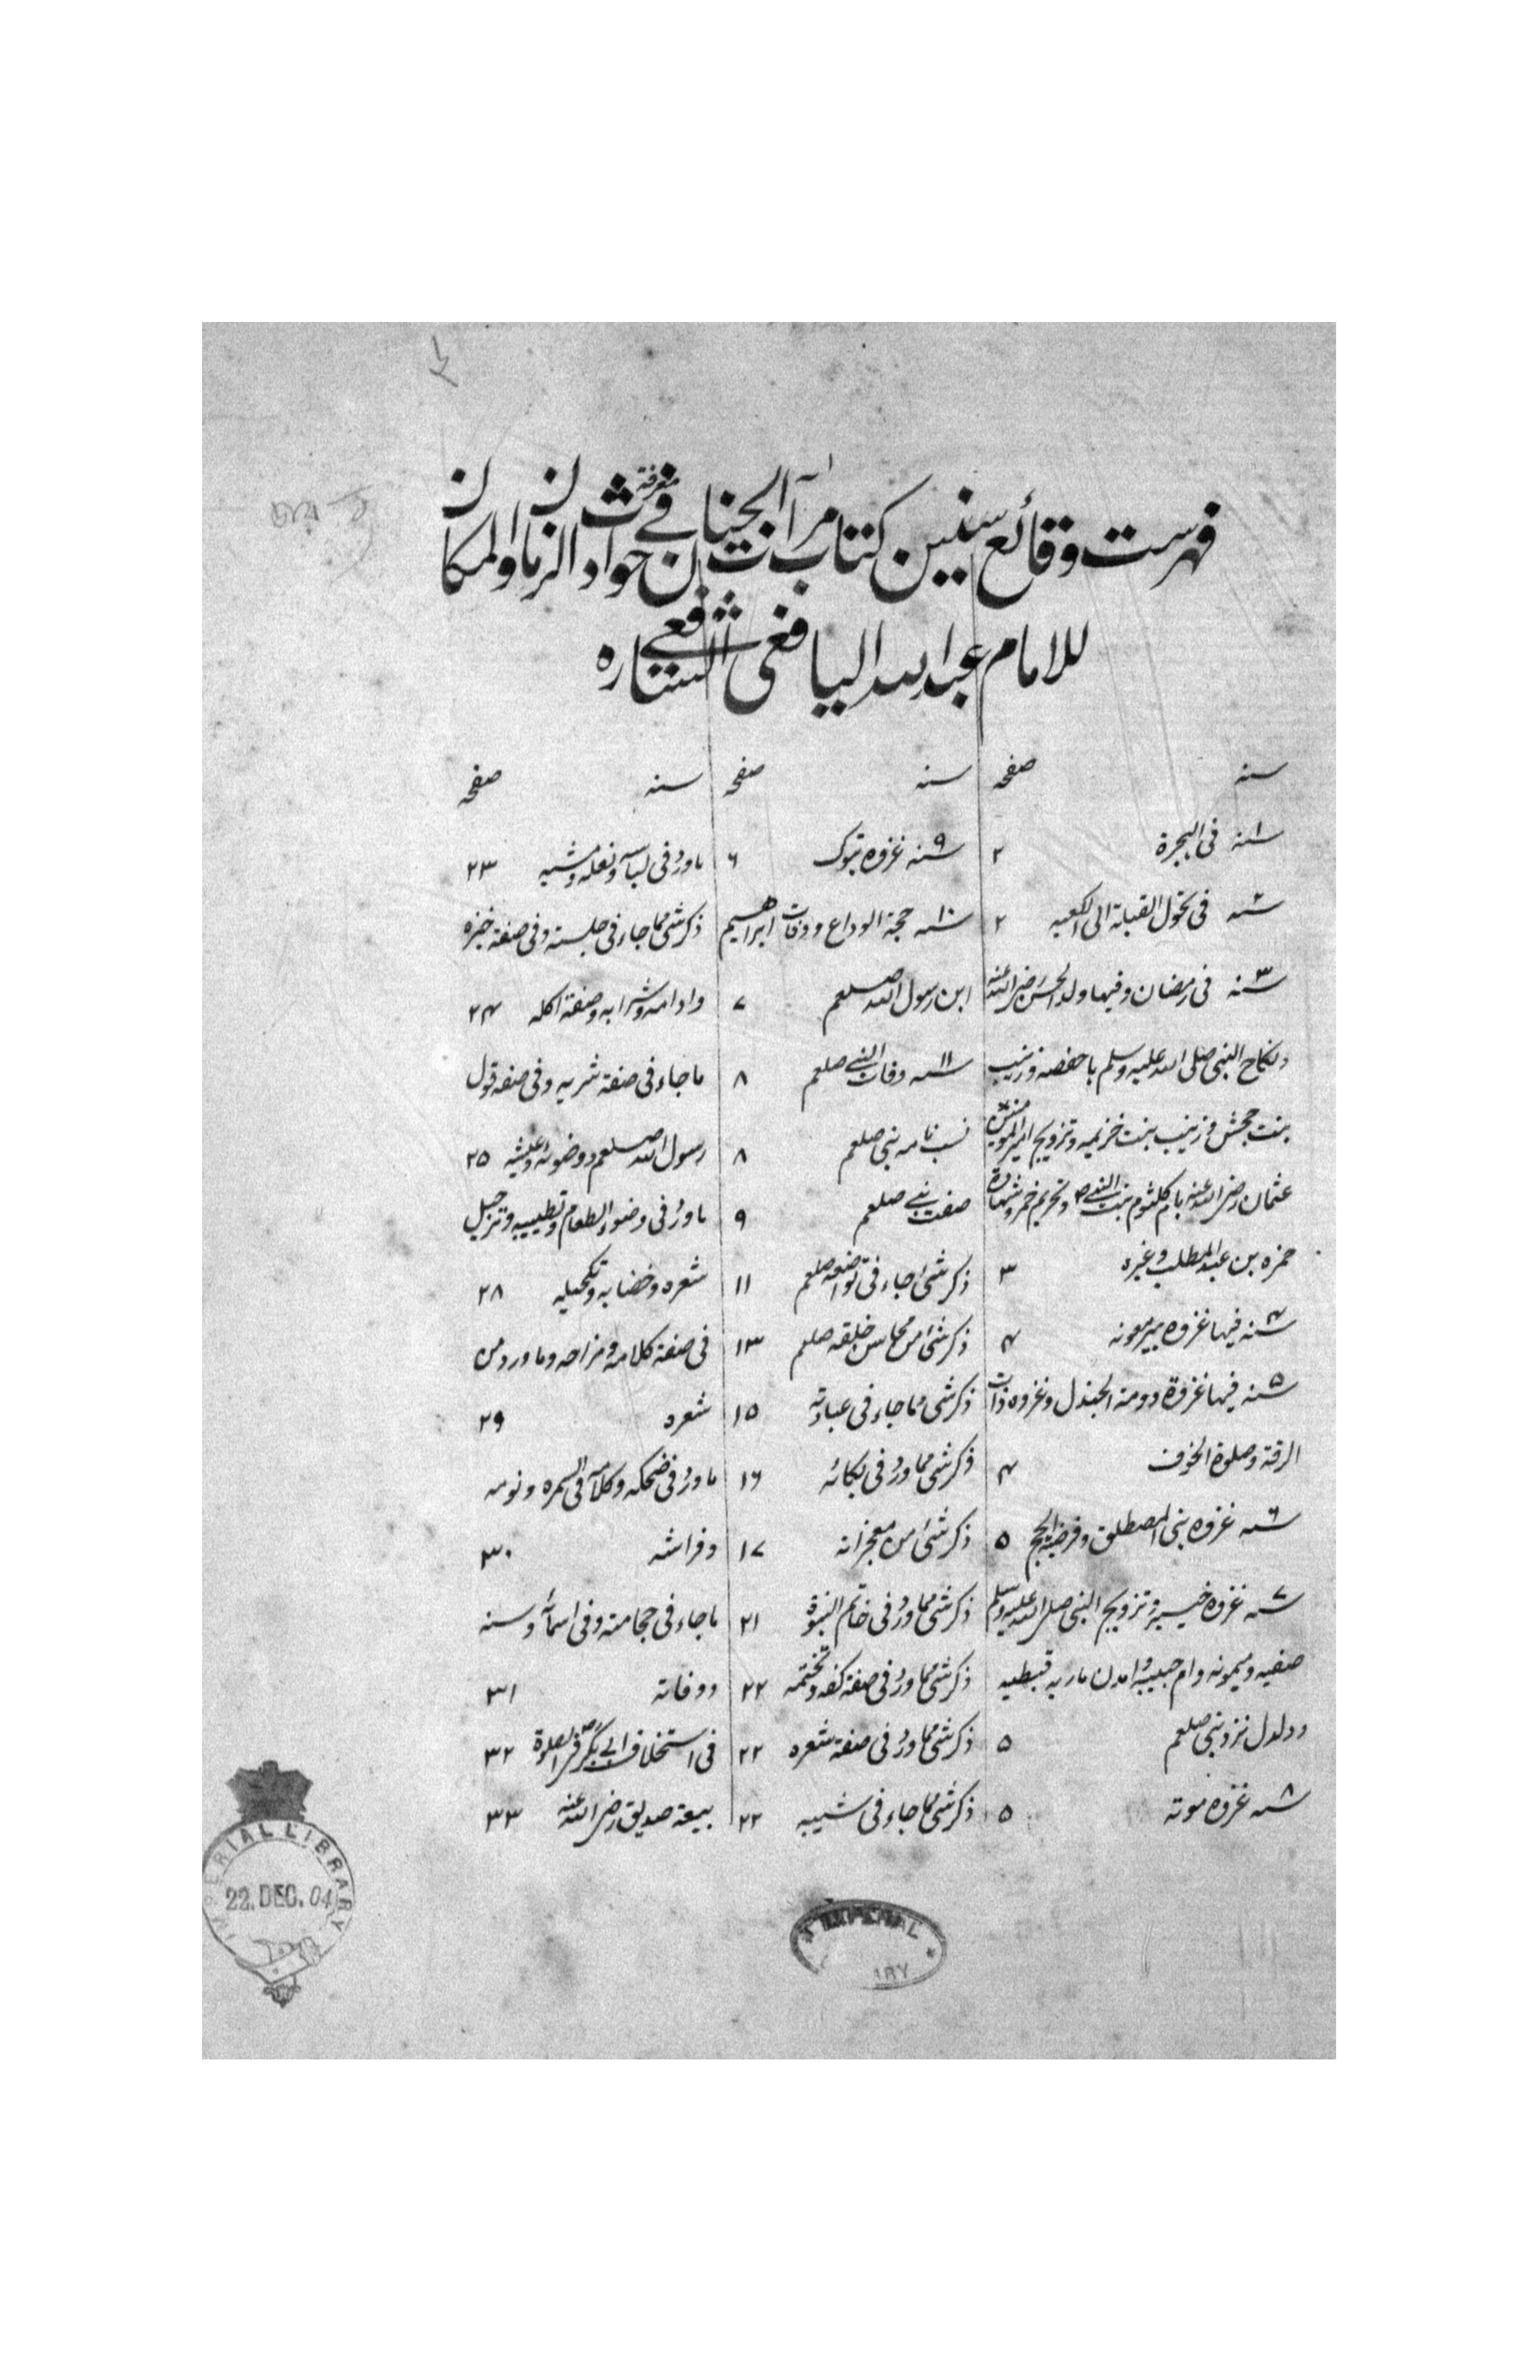 فهرست وقائع سنين كتاب مرآت الجنان في معرفة حوادث الزمان والمكان
للامام عبد الله اليافعى الشافعي
سنه صفحه
سنه ١ فى الهجرة ٢
سنه ٢ فى تحول القبلة الى الكعبه ٢
سنه ٣ فى رمضان وفيها ولد الحسن رضى الله عنه
ونكاح النبى صلى الله عليه وسلم با حفصه وزينب
بنت جحش و زينب بنت خزيمه وتزويج امير المومنين
عثمان رضى الله عنه بام كلثوم بنت النبي ص وتحريم خمر وشهادة
حمزه بن عبد المطلب وغيره ٣
سنه ٤ فيها غزوه بير معونه ٤
سنه ٥ فيها غزوة دومة الجندل وغزوه ذات
الرقة وصلوة الخوف ٤
سنه ٦ غزوه بنى المصطلق وفرضية الحج ٥
سنه ٧ غزوه خيبر وتزويج النبى صلى الله عليه وسلم
صفيه و ميمونه وام حبيبه و امدن ماريه قبطيه
ودلدل نزد نبى صلعم ٥
سنه ٨ غزوه موته ٥
سنه صفحه
سنه ٩ غزوه تبوك ٦
سنه ١٠ حجة الوداع ووفات ابراهيم
ابن رسول الله صلعم ٧
سنه ١١ وفات النبي صلعم ٨
نسب نامه نبى صلعم ٨
صفت نبي صلعم ٩
ذكر شئ جاء فى تواضعه صلعم ١١
ذكر شئ من محاسن خلقه صلعم ١٣
ذكر شى مما جاء فى عبادته ١٥
ذكر شى مما ورد فى بكائه ١٦
ذكر شئ من معجزاته ١٧
ذكر شى مما ورد فى خاتم النبوة ٢١
ذكر شى مما ورد فى صفة كفه وتختمه ٢٢
ذكر شى مما ورد فى صفة شعره ٢٢
ذكر شى مما جاء فى شيبه ٢٢
سنه صفحه
ما ورد فى لباسه ونعله ومشيه ٢٣
ذكر شى مما جاء فى جلسته وفى صفة خبزه
وادامه وشرابه وصفة اكله ٢٤
ما جاء فى صفة شربه وفى صفة قول
رسول الله صلعم ووضوئه وعيشه ٢٥
ما ورد فى وضوء الطعام وتطييبه وترجيل
شعره وخضابه وتكحيله ٢٨
فى صفة كلامه ومزاحه وما ورد من
شعره ٢٩
ما ورد فى ضحكه وكلامه فى السمره ونومه
وفراشه ٣٠
ما جاء فى حجامته وفى اسمائه وسنه
ووفاته ٣١
فى استخلاف ابي بكر فى الصلوة ٣٢
بيعة صديق رضى الله عنه ٣٣
IMPERIAL LIBRARY
22. DEC. 04
IMPERIAL